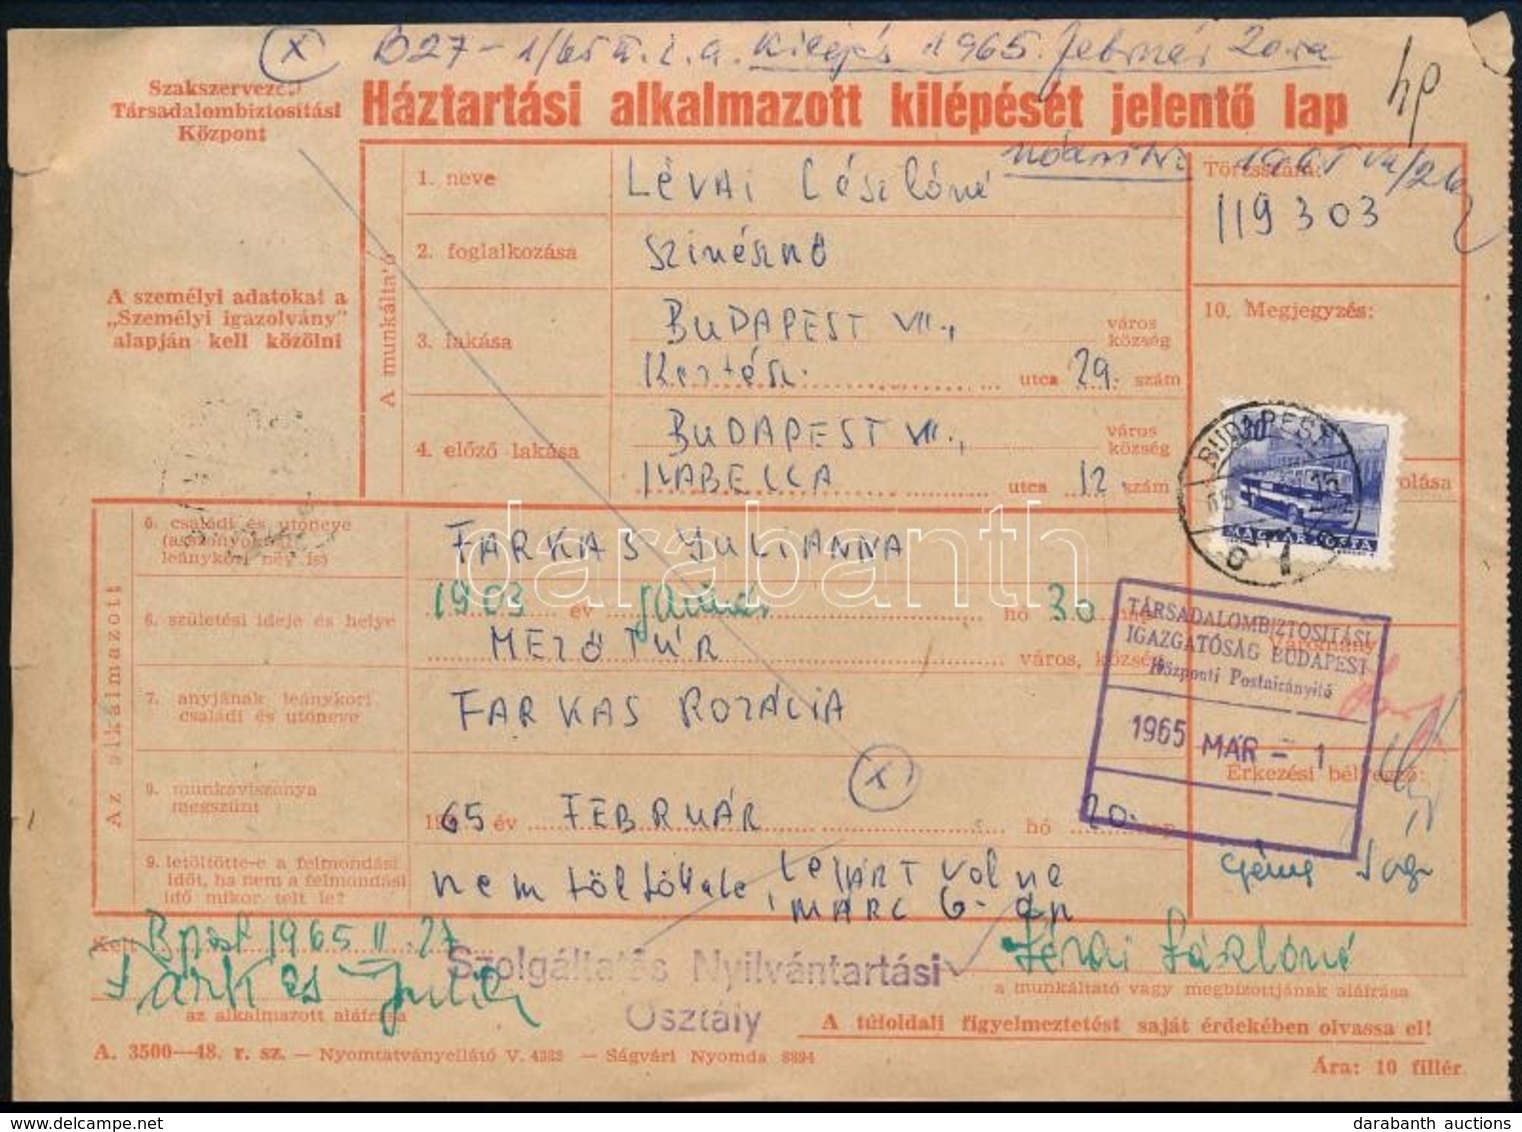 B27-1/65 II. i. a. Kilépés 1965. február 20-ra
Szakszervezeti
Társadalombiztosítási
Központ
Háztartási alkalmazott kilépését jelentő lap
A személyi adatokat a
„Személyi igazolvány"
alapján kell közölni
A munkáltató
1. neve
LÉVAI LÁSZLÓNÉ
2. foglalkozása
SZINÉSZNŐ
3. lakása
BUDAPEST VII.,
város
község
Kertész utca 29. szám
4. előző lakása
BUDAPEST VII.,
város
község
IZABELLA utca 12. szám
Törzsszám:
119303
10. Megjegyzés:
BUDAPEST
MAGYAR POSTA
Az alkalmazott
5. családi és utóneve
(asszonyoknál
leánykori név is)
FARKAS JULIANNA
6. születési ideje és helye
1903 év június hó 30
MEZŐTÚR
város, község
7. anyjának leánykori
családi és utóneve
FARKAS ROZÁLIA
8. munkaviszonya
megszünt
1965 év FEBRUÁR hó 20. nap
9. letöltötte-e a felmondási
időt, ha nem a felmondási
idő mikor telt le?
nem töltötte le, LEJÁRT VOLNA
MÁRC 6-án
TÁRSADALOMBIZTOSITÁSI
IGAZGATÓSÁG BUDAPEST
Központi Postairányító
1965 MÁR - 1
Érkezési bélyegző:
Kelt Bpest 1965 II. 27
Farkas Julia
az alkalmazott aláírása
Szolgáltatás Nyilvántartási
Osztály
Lévai Lászlóné
a munkáltató vagy megbízottjának aláírása
A túloldali figyelmeztetést saját érdekében olvassa el!
A. 3500—48. r. sz. — Nyomtatványellátó V. 4333 — Ságvári Nyomda 8894
Ára: 10 fillér
darabanth
darabanth auctions